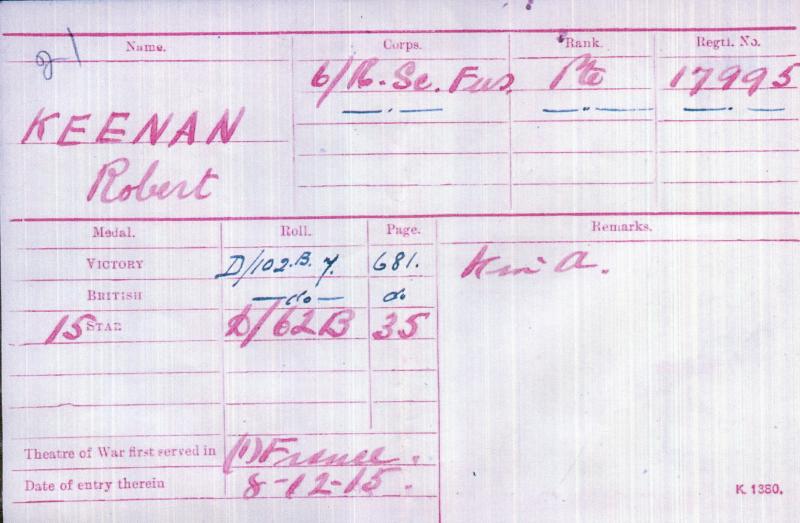 Name. Corps. Rank. Regtl. No.
6/R. Sc. Fus. Pte 17995
KEENAN
Robert
Medal. Roll. Page. Remarks.
VICTORY D/102.B.7. 681. K in A.
BRITISH —do— do
15 STAR D/62B 35
Theatre of War first served in (1) France.
Date of entry therein 8-12-15.
K. 1380.